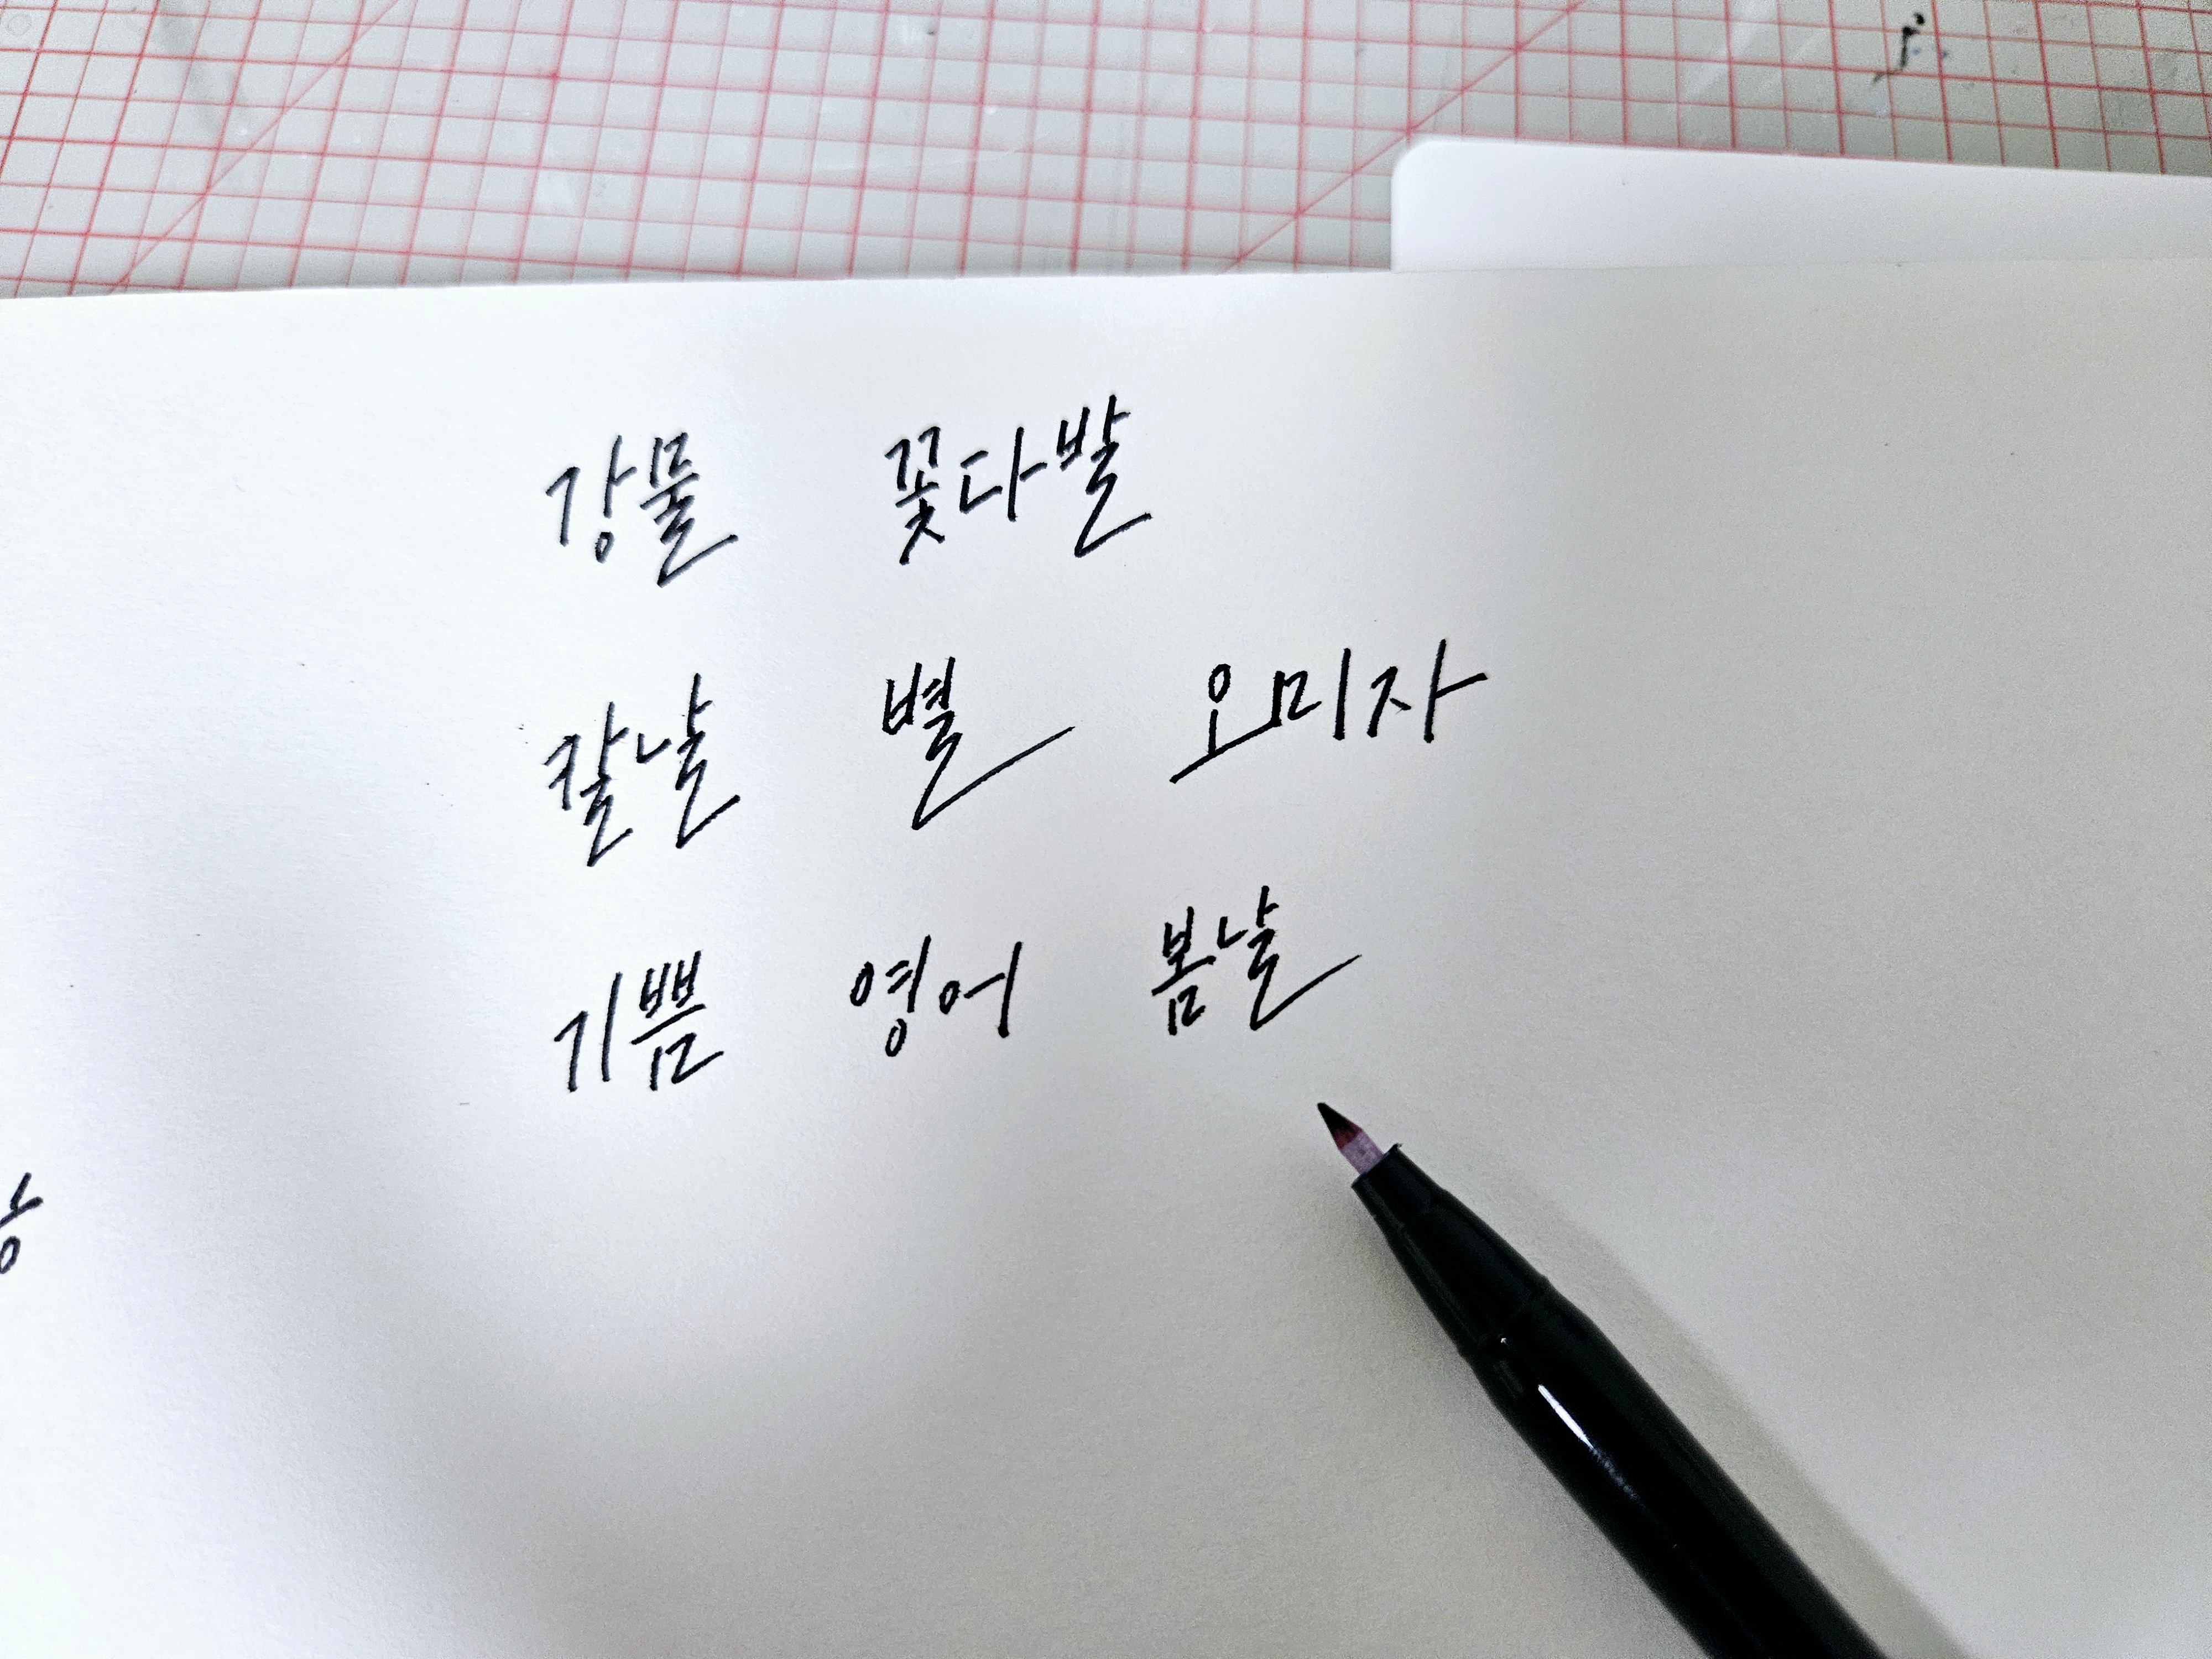 강물 꽃다발
칼날 별 오미자
기쁨 영어 봄날